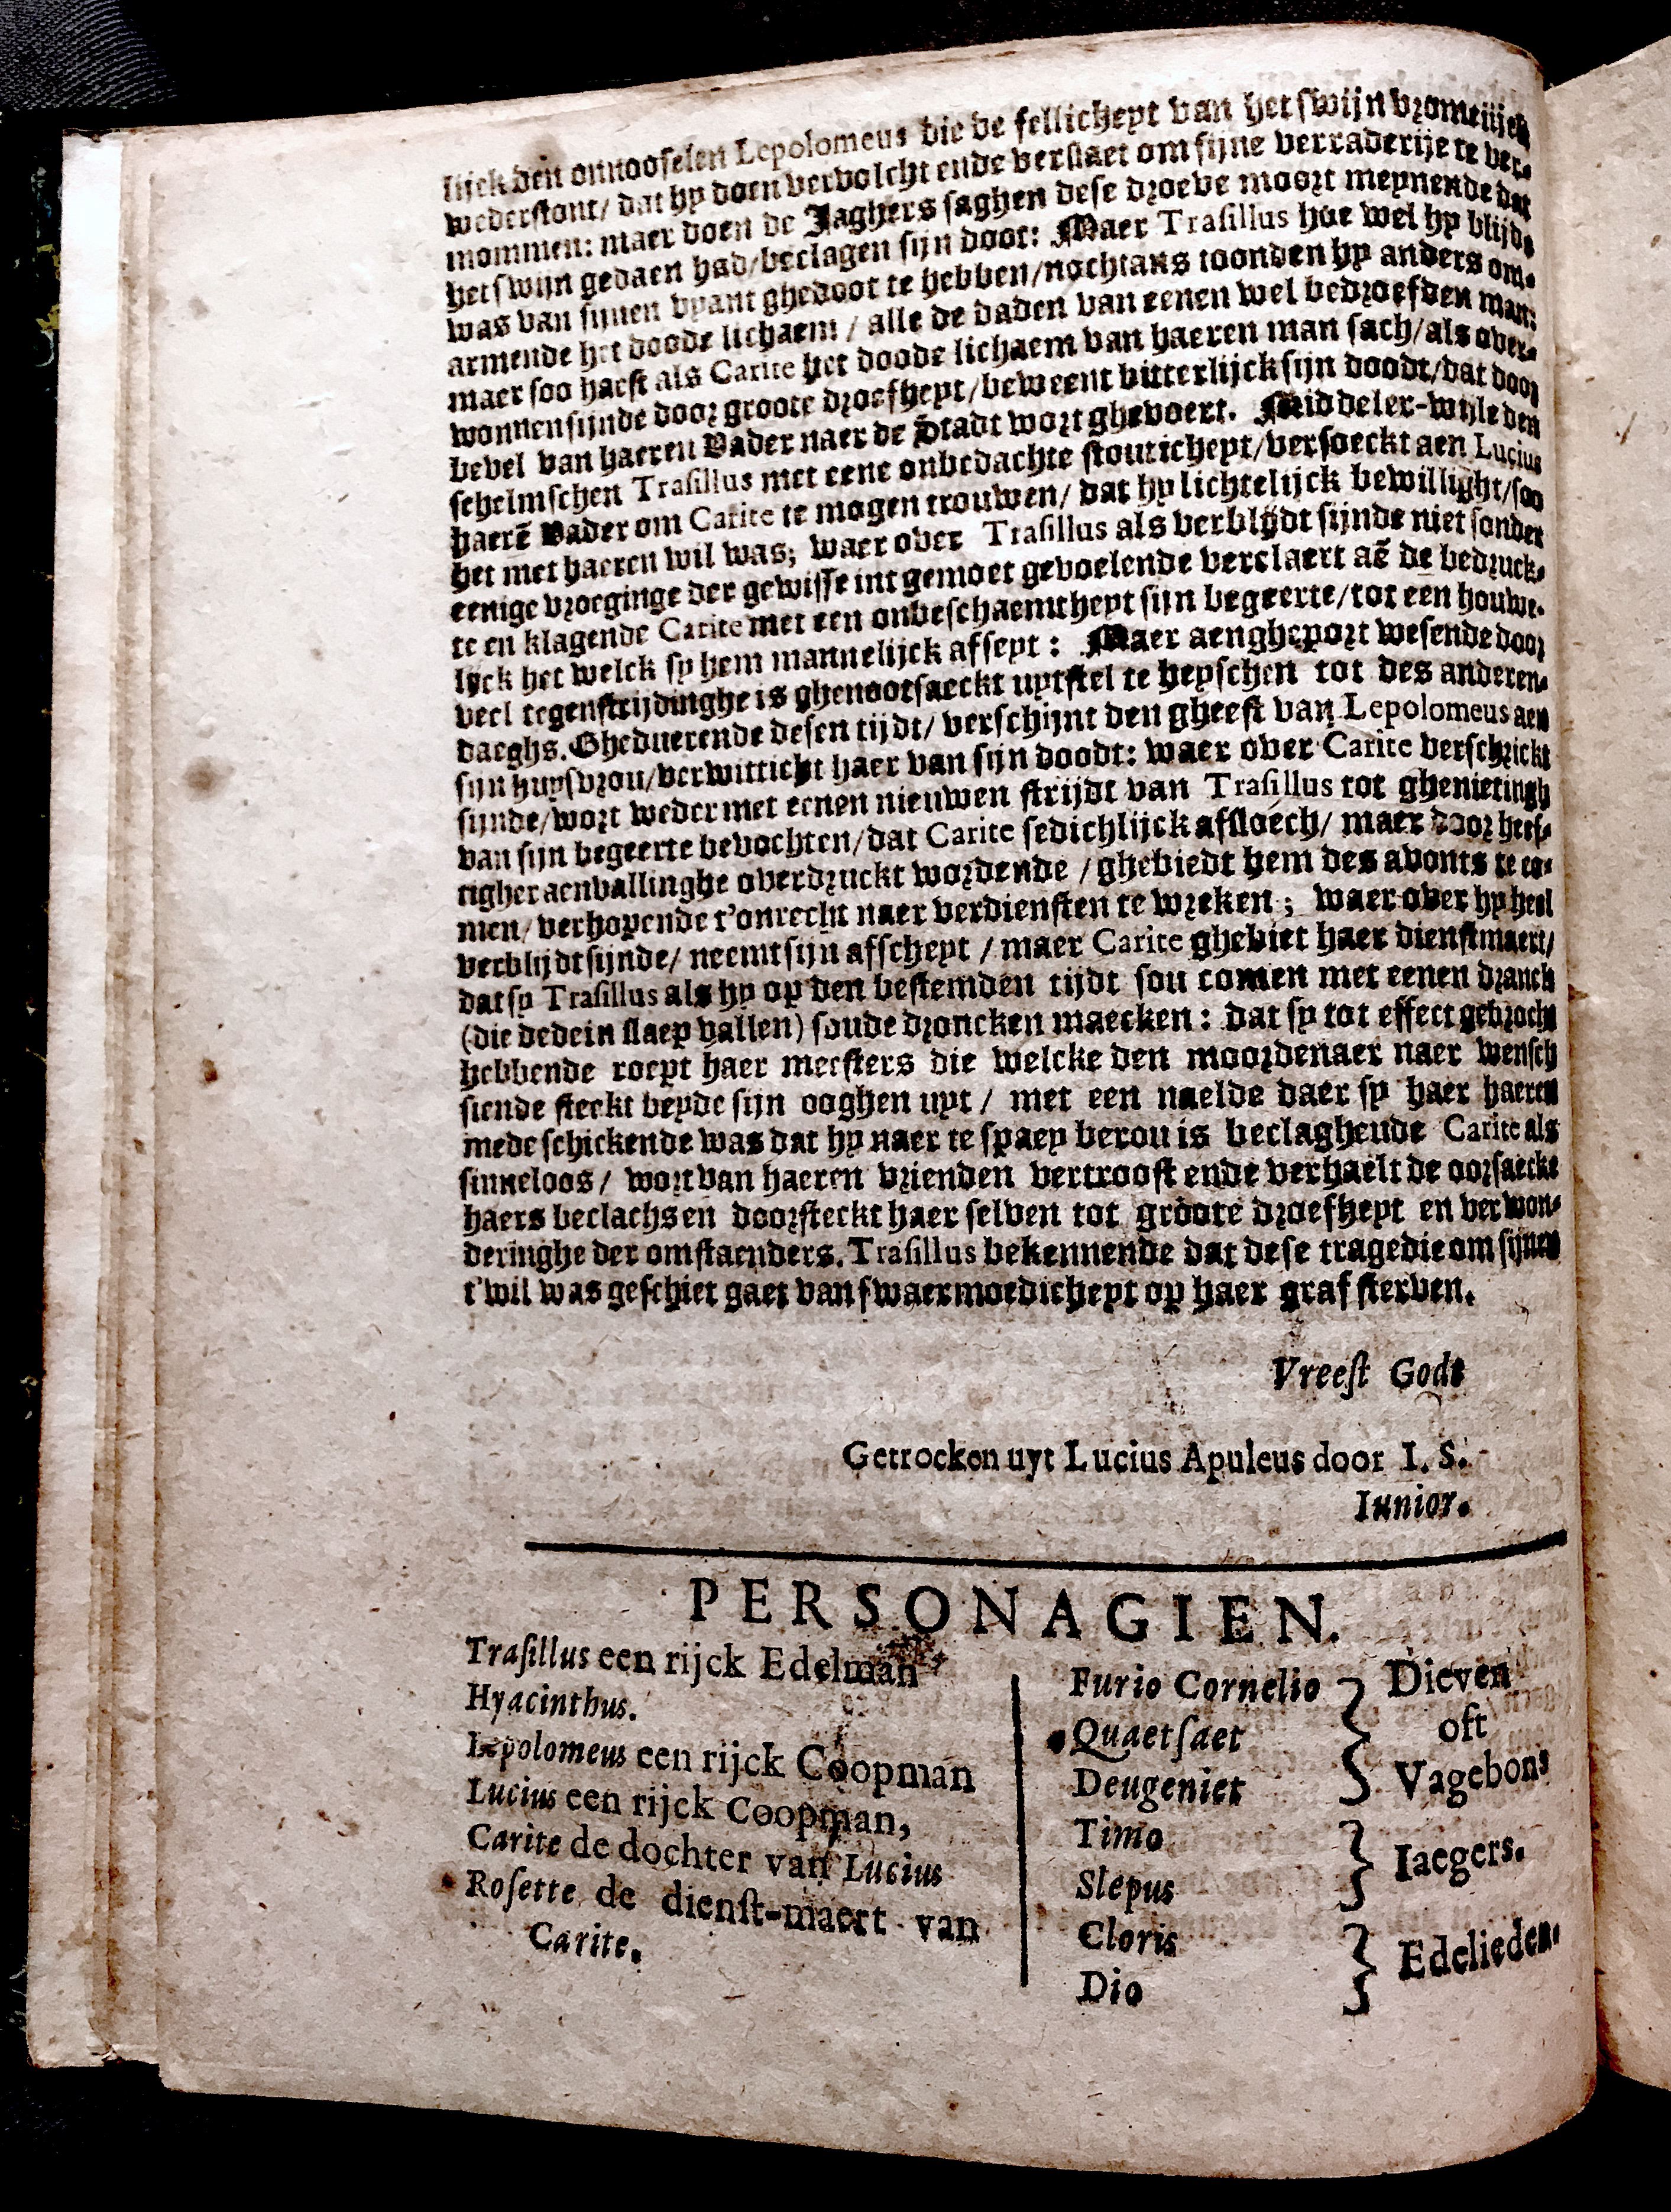 lijck den onnooselen Lepolomeus die de fellicheyt van het swijn vromelijck
wederstont/ dat hy doen vervolcht ende verslaet om sijne verraderije te ver-
mommen: maer doen de Jaghers saghen dese droeve moort meynende dat
het swijn gedaen had/beclagen sijn doot: Maer Trasillus hoe wel hy blijde
was van sijnen vyant ghedoot te hebben/nochtans toonden hy anders om-
armende het doode lichaem / alle de daden van eenen wel bedroefden man:
maer soo haest als Carite het doode lichaem van haeren man sach/als over-
wonnen sijnde door groote droefheyt/beweent bitterlijck sijn doodt/dat door
bevel van haeren Vader naer de Stadt wort ghevoert. Middeler-wijle den
schelmschen Trasillus met eene onbedachte stouticheyt/versoeckt aen Lucius
haerē Vader om Carite te mogen trouwen/ dat hy lichtelijck bewillight/soo
het met haeren wil was; waer over Trasillus als verblijdt sijnde niet sonder
eenige vroeginge der gewisse int gemoet gevoelende verclaert aē de bedruck-
te en klagende Carite met een onbeschaemtheyt sijn begeerte/tot een houwe-
lijck het welck sy hem mannelijck afseyt: Maer aengheport wesende door
veel tegenstrijdinghe is ghenootsaeckt uytstel te heyschen tot des anderen-
daeghs. Gheduerende desen tijdt/ verschijnt den gheest van Lepolomeus aen
sijn huysvrou/verwitticht haer van sijn doodt: waer over Carite verschrickt
sijnde/wort weder met eenen nieuwen strijdt van Trasillus tot ghenietingh
van sijn begeerte bevochten/dat Carite sedichlijck afsloech/ maer door heef-
tigher aenvallinghe overdruckt wordende /ghebiedt hem des avonts te co-
men/ verhopende t'onrecht naer verdiensten te wreken; waer over hy heel
verblijdt sijnde/ neemt sijn afscheyt / maer Carite ghebiet haer dienstmaert/
dat sy Trasillus als hy op den bestemden tijdt sou comen met eenen dranck
(die dede in slaep vallen) soude droncken maecken: dat sy tot effect gebrocht
hebbende roept haer meesters die welcke den moordenaer naer wensch
siende steckt beyde sijn ooghen uyt / met een naelde daer sy haer haeren
mede schickende was dat hy naer te spaey berou is beclaghende Carite als
sinneloos / wort van haeren vrienden vertroost ende verhaelt de oorsaecke
haers beclachs en doorsteckt haer selven tot groote droefheyt en verwon-
deringhe der omstaenders. Trasillus bekennende dat dese tragedie om sijnen
t'wil was geschiet gaet van swaermoedicheyt op haer graf sterven.
Vreest Godt
Getrocken uyt Lucius Apuleus door I. S.
Iunior.
PERSONAGIEN.
Trasillus een rijck Edelman
Hyacinthus.
Lepolomeus een rijck Coopman
Lucius een rijck Coopman,
Carite de dochter van Lucius
Rosette de dienst-maert van
Carite.
Furio Cornelio
Quaetsaet
Deugeniet
Dieven
oft
Vagebons
Timo
Slepus
Iaegers.
Cloris
Dio
Edelieden.